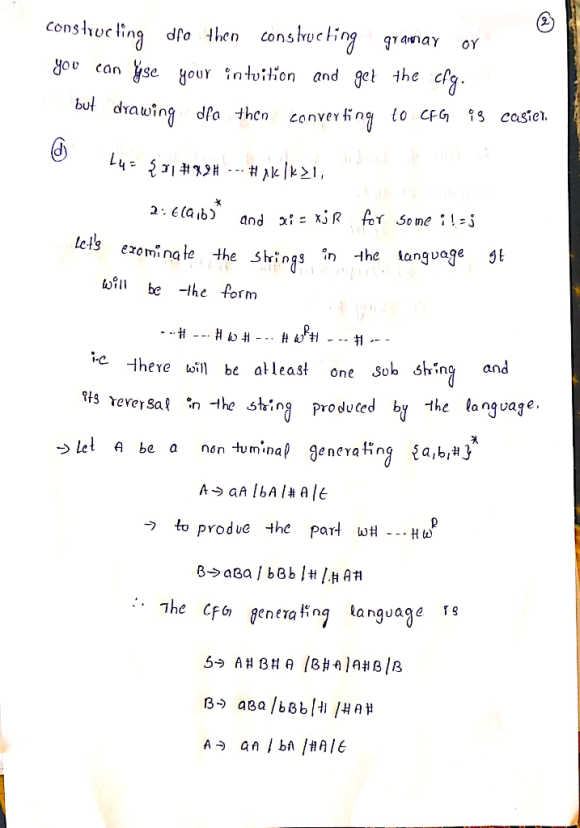 ②
constructing dfa then constructing gramar or
you can yse your intuition and get the cfg.
but drawing dfa then converting to CFG is easier.
ⓓ L4 = {x1#x2# --- # xk|k≥1,
x: ∈(a,b)* and xi = xjR for some i!=j
Let's exominate the strings in the language It
will be the form
---# --- # w # --- # wR# --- # ---
i.e there will be atleast one sub string and
its reversal in the string produced by the language.
→ Let A be a non tuminal generating {a,b,#}*
A → aA |bA|#A|ε
→ to produe the part w# --- #wR
B → aBa | bBb | # |.#A#
∴ The CFG generating language is
S → A#B#A |B#A|A#B|B
B → aBa |bBb|# |#A#
A → aA | bA |#A|ε